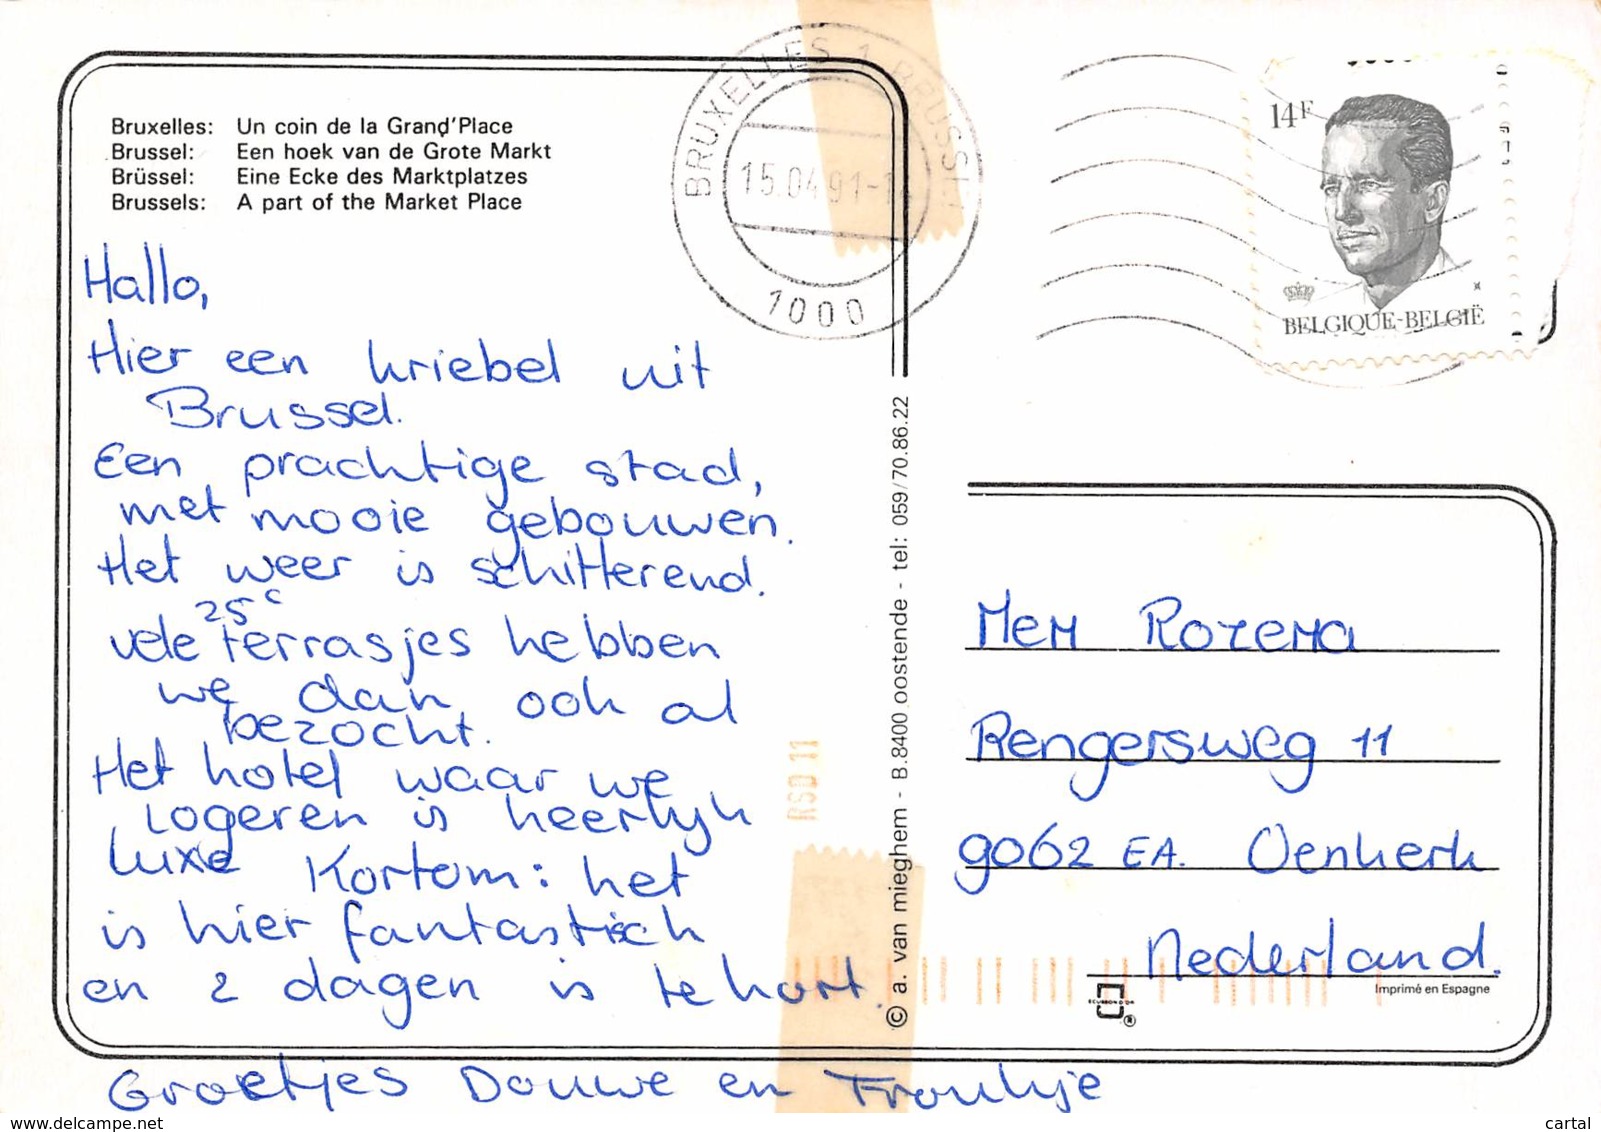 Bruxelles: Un coin de la Grand'Place
Brussel: Een hoek van de Grote Markt
Brüssel: Eine Ecke des Marktplatzes
Brussels: A part of the Market Place
BRUXELLES 1 BRUSSEL
15.04.91-1
1000
14F
BELGIQUE-BELGIË
Hallo,
Hier een kriebel uit
Brussel.
Een prachtige stad,
met mooie gebouwen.
Het weer is schitterend.
25°
vele terrasjes hebben
we dan ook al
bezocht.
Het hotel waar we
logeren is heerlijk
luxe Kortom: het
is hier fantastisch
en 2 dagen is te kort.
Groetjes Douwe en Froukje
© a. van mieghem - B.8400 oostende - tel: 059/70.86.22
RSD 11
Mem Rozema
Rengersweg 11
9062 EA. Oenkerk
Nederland.
Imprimé en Espagne
ECUSSON D'OR
®
www.delcampe.net
cartal